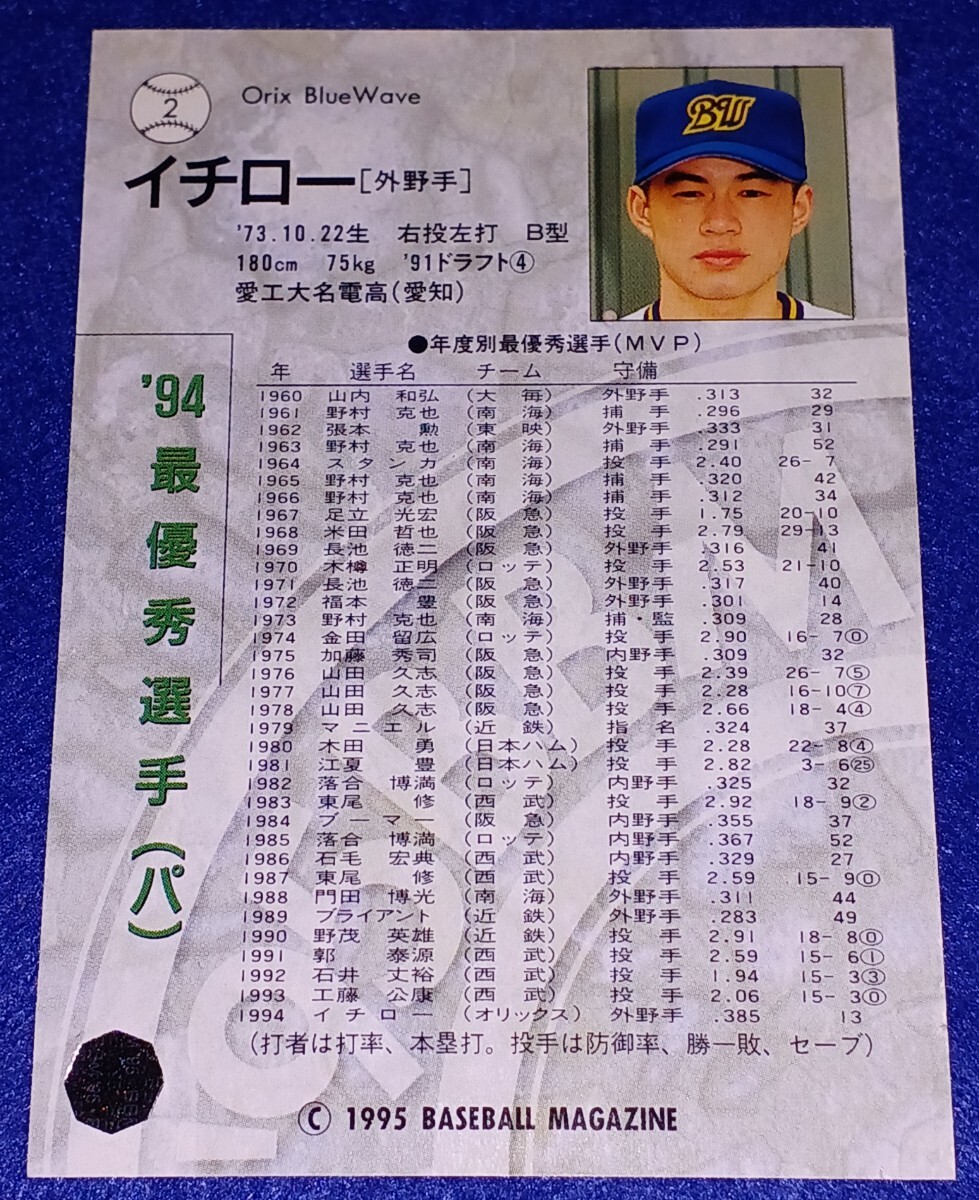 2
Orix BlueWave
BW
イチロー[外野手]
'73.10.22生 右投左打 B型
180cm 75kg '91ドラフト④
愛工大名電高(愛知)
'94最優秀選手(パ)
●年度別最優秀選手(MVP)
年 選手名 チーム 守備
1960 山内 和弘 (大 毎) 外野手 .313 32
1961 野村 克也 (南 海) 捕 手 .296 29
1962 張本 勲 (東 映) 外野手 .333 31
1963 野村 克也 (南 海) 捕 手 .291 52
1964 スタンカ (南 海) 投 手 2.40 26- 7
1965 野村 克也 (南 海) 捕 手 .320 42
1966 野村 克也 (南 海) 捕 手 .312 34
1967 足立 光宏 (阪 急) 投 手 1.75 20-10
1968 米田 哲也 (阪 急) 投 手 2.79 29-13
1969 長池 徳二 (阪 急) 外野手 .316 41
1970 木樽 正明 (ロッテ) 投 手 2.53 21-10
1971 長池 徳二 (阪 急) 外野手 .317 40
1972 福本 豊 (阪 急) 外野手 .301 14
1973 野村 克也 (南 海) 捕・監 .309 28
1974 金田 留広 (ロッテ) 投 手 2.90 16- 7⓪
1975 加藤 秀司 (阪 急) 内野手 .309 32
1976 山田 久志 (阪 急) 投 手 2.39 26- 7⑤
1977 山田 久志 (阪 急) 投 手 2.28 16-10⑦
1978 山田 久志 (阪 急) 投 手 2.66 18- 4④
1979 マニエル (近 鉄) 指 名 .324 37
1980 木田 勇 (日本ハム) 投 手 2.28 22- 8④
1981 江夏 豊 (日本ハム) 投 手 2.82 3- 6㉕
1982 落合 博満 (ロッテ) 内野手 .325 32
1983 東尾 修 (西 武) 投 手 2.92 18- 9②
1984 ブーマー (阪 急) 内野手 .355 37
1985 落合 博満 (ロッテ) 内野手 .367 52
1986 石毛 宏典 (西 武) 内野手 .329 27
1987 東尾 修 (西 武) 投 手 2.59 15- 9⓪
1988 門田 博光 (南 海) 外野手 .311 44
1989 ブライアント (近 鉄) 外野手 .283 49
1990 野茂 英雄 (近 鉄) 投 手 2.91 18- 8⓪
1991 郭 泰源 (西 武) 投 手 2.59 15- 6①
1992 石井 丈裕 (西 武) 投 手 1.94 15- 3③
1993 工藤 公康 (西 武) 投 手 2.06 15- 3⓪
1994 イチロー (オリックス) 外野手 .385 13
(打者は打率、本塁打。投手は防御率、勝ー敗、セーブ)
© 1995 BASEBALL MAGAZINE